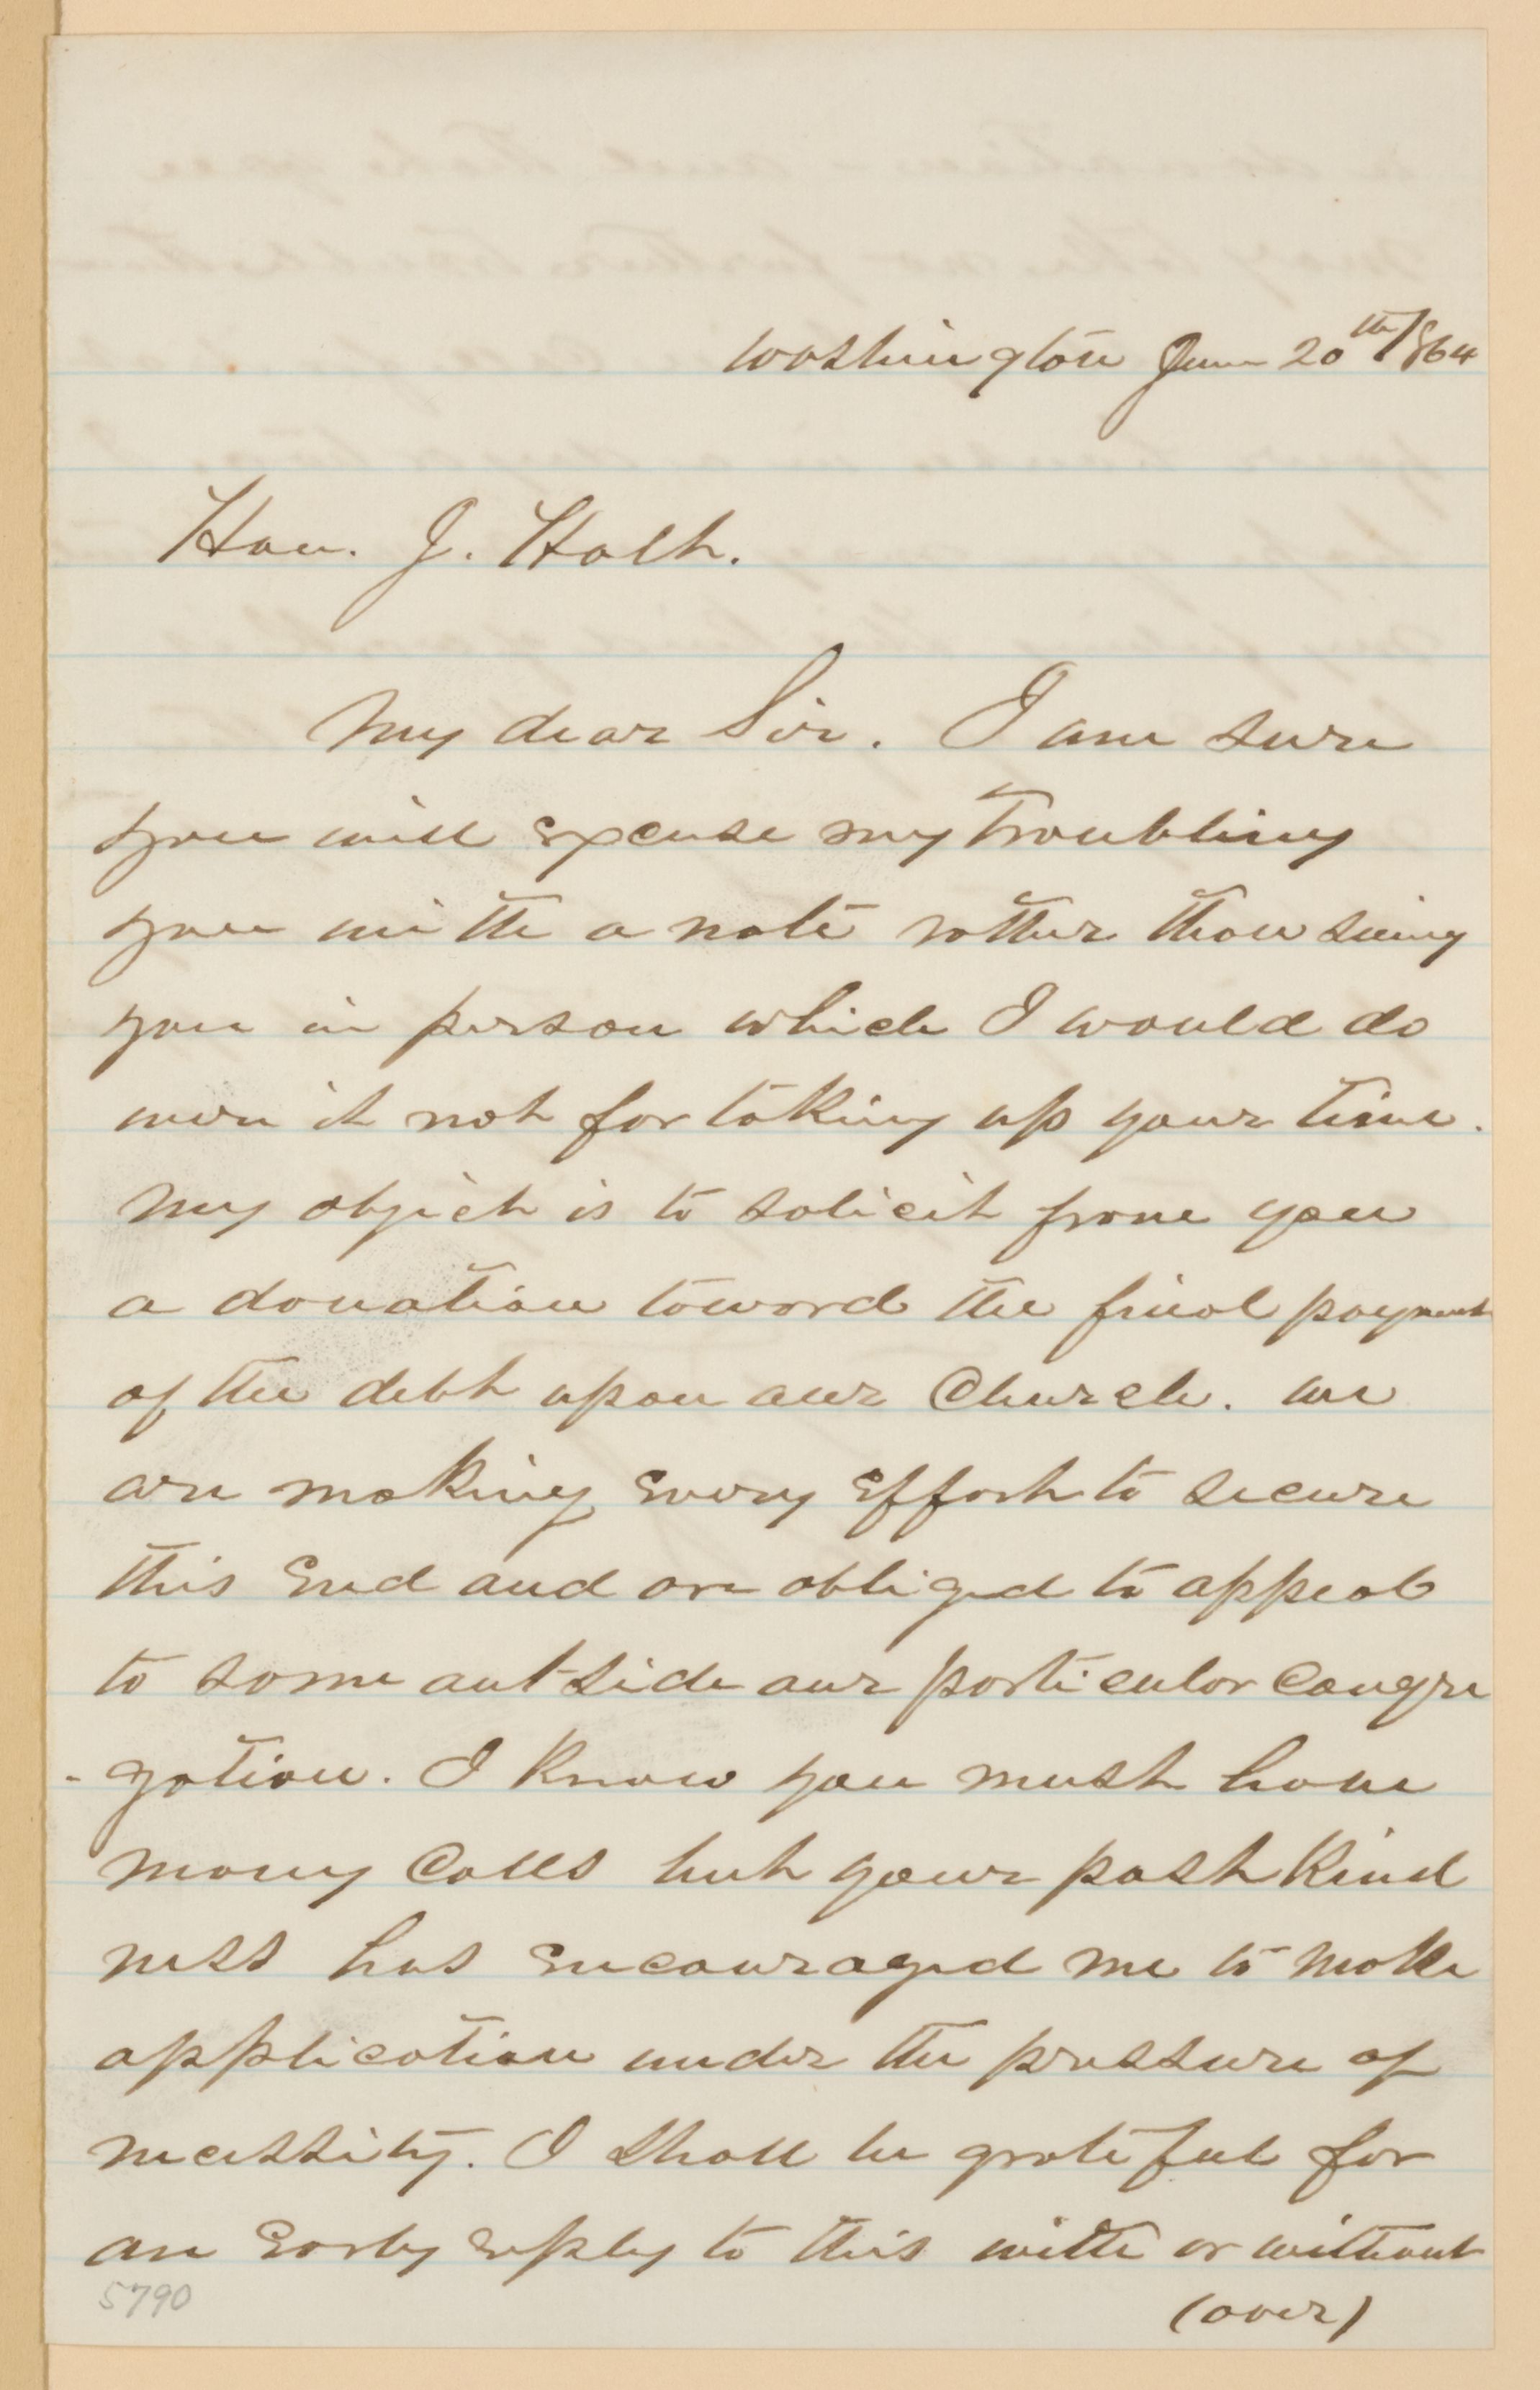 Washington June 20th/864
Hon. J. Holt.
My dear Sir. I am sure
you will excuse my troubling
you with a note rather than seeing
you in person which I would do
were it not for taking up your time.
My object is to solicit from you
a donation toward the final payment
of the debt upon our Church. We
are making Every Effort to secure
this End and are obliged to appeal
to some outside our particular Congre
-gation. I Know you must have
many Calls but your past Kind
ness has Encouraged me to make
application under the pressure of
necessity. I shall be grateful for
an Early reply to this with or without
(over)
5790